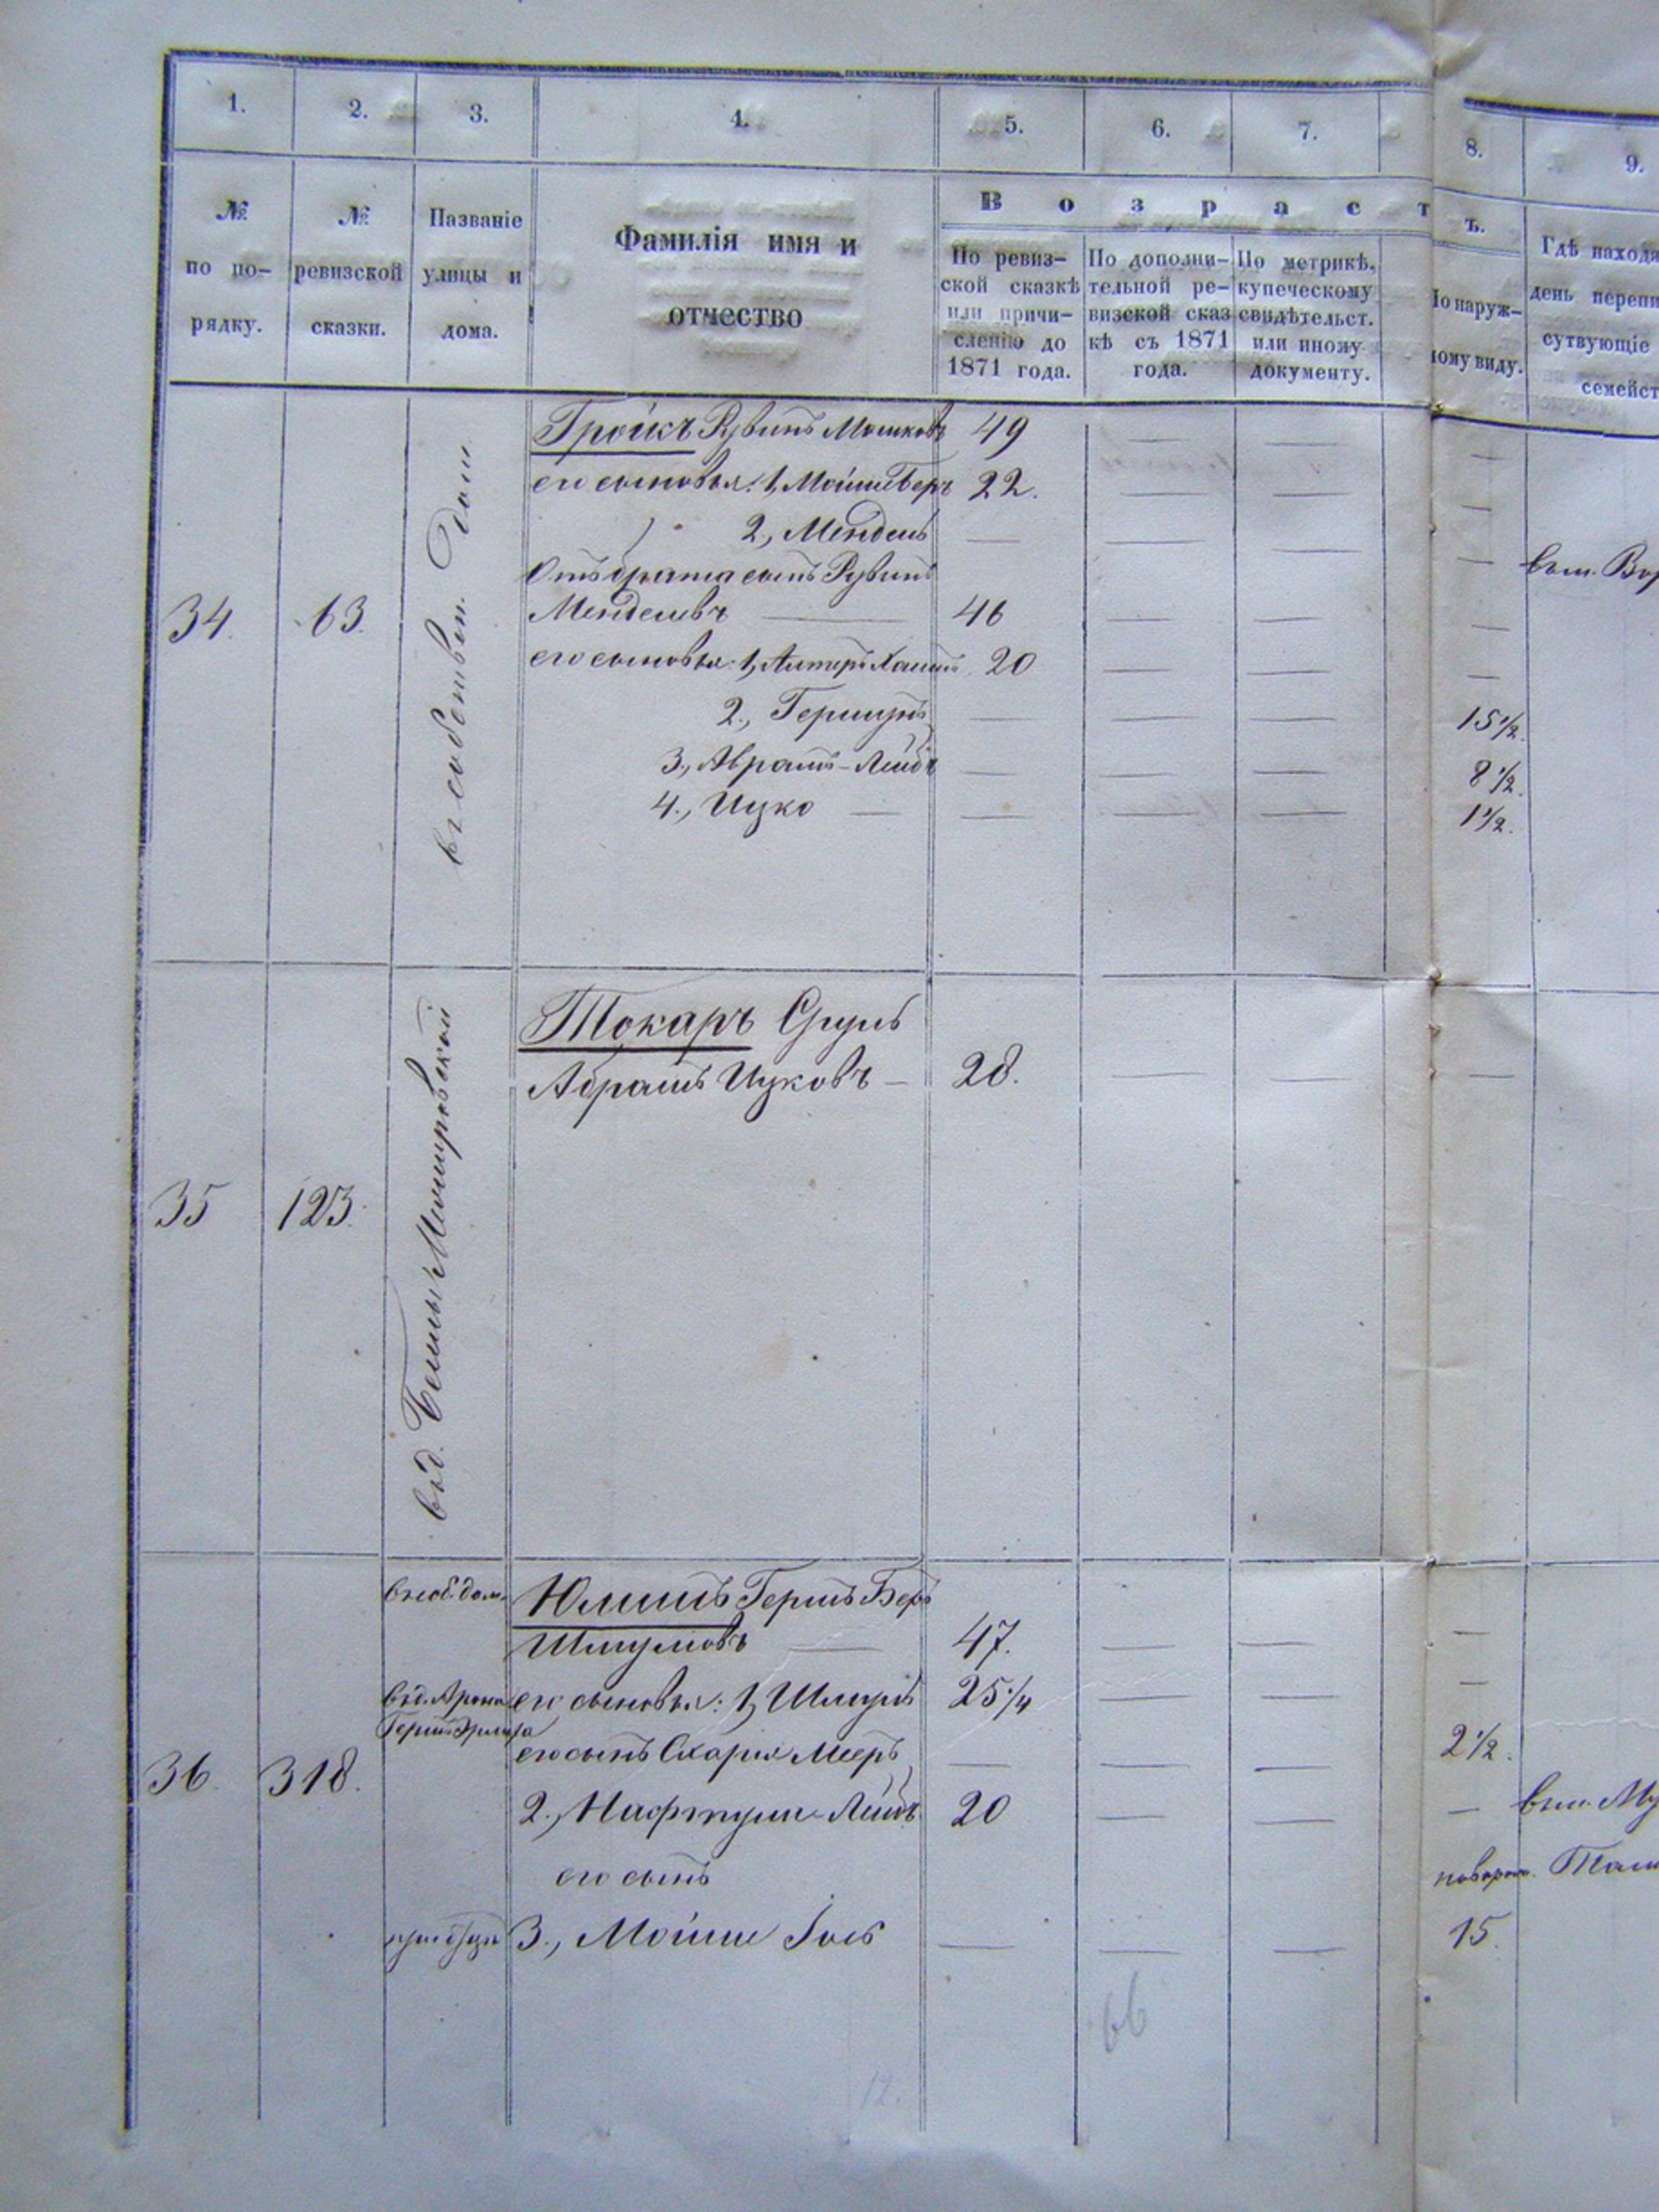 1. 2. 3. 4. 5. 6. 7. 8. 9.
№ по по-
рядку.
№ ревизской
сказки.
Названіе
улицы и
дома.
Фамилія имя и
отчество
В о з р а с т ъ.
По ревиз-
ской сказкѣ
или причи-
сленію до
1871 года.
По дополни-
тельной ре-
визской сказ
кѣ съ 1871
года.
По метрикѣ,
купеческому
свидѣтельст.
или иному
документу.
По наруж-
ному виду.
Гдѣ находя
день перепи
сутвующіе
семейст
34. 63. въ собствен. дом
Гройсъ Рувинъ Мошковъ 49 — — —
его сыновья: 1, Мойше Беръ 22. — — —
2., Мендель — — — —
Отъ брата сынъ Рувинъ
Менделевъ — 46 — — —
его сыновья: 1, Алтеръ Хаимъ 20 — — —
2., Гершунъ — — — 15½.
3., Абрамъ-Лейбъ — — — 8½.
4., Ицко — — — — 1½.
35 123. въ д.
Токаръ Сруль
Абрамъ Ицковъ — 28. — — —
36. 318. въ соб. дом.
Юлишъ Гершъ Беръ
Шмулевъ — 47. — — —
въ д. Арона его сыновья: 1, Шмуль 25¼ — — —
Гершъ
его сынъ Схария Мееръ — — — 2½.
2., Нафтули-Лейбъ 20 — — —
его сынъ
3., Мойше Іось — — — 15.
66
12.